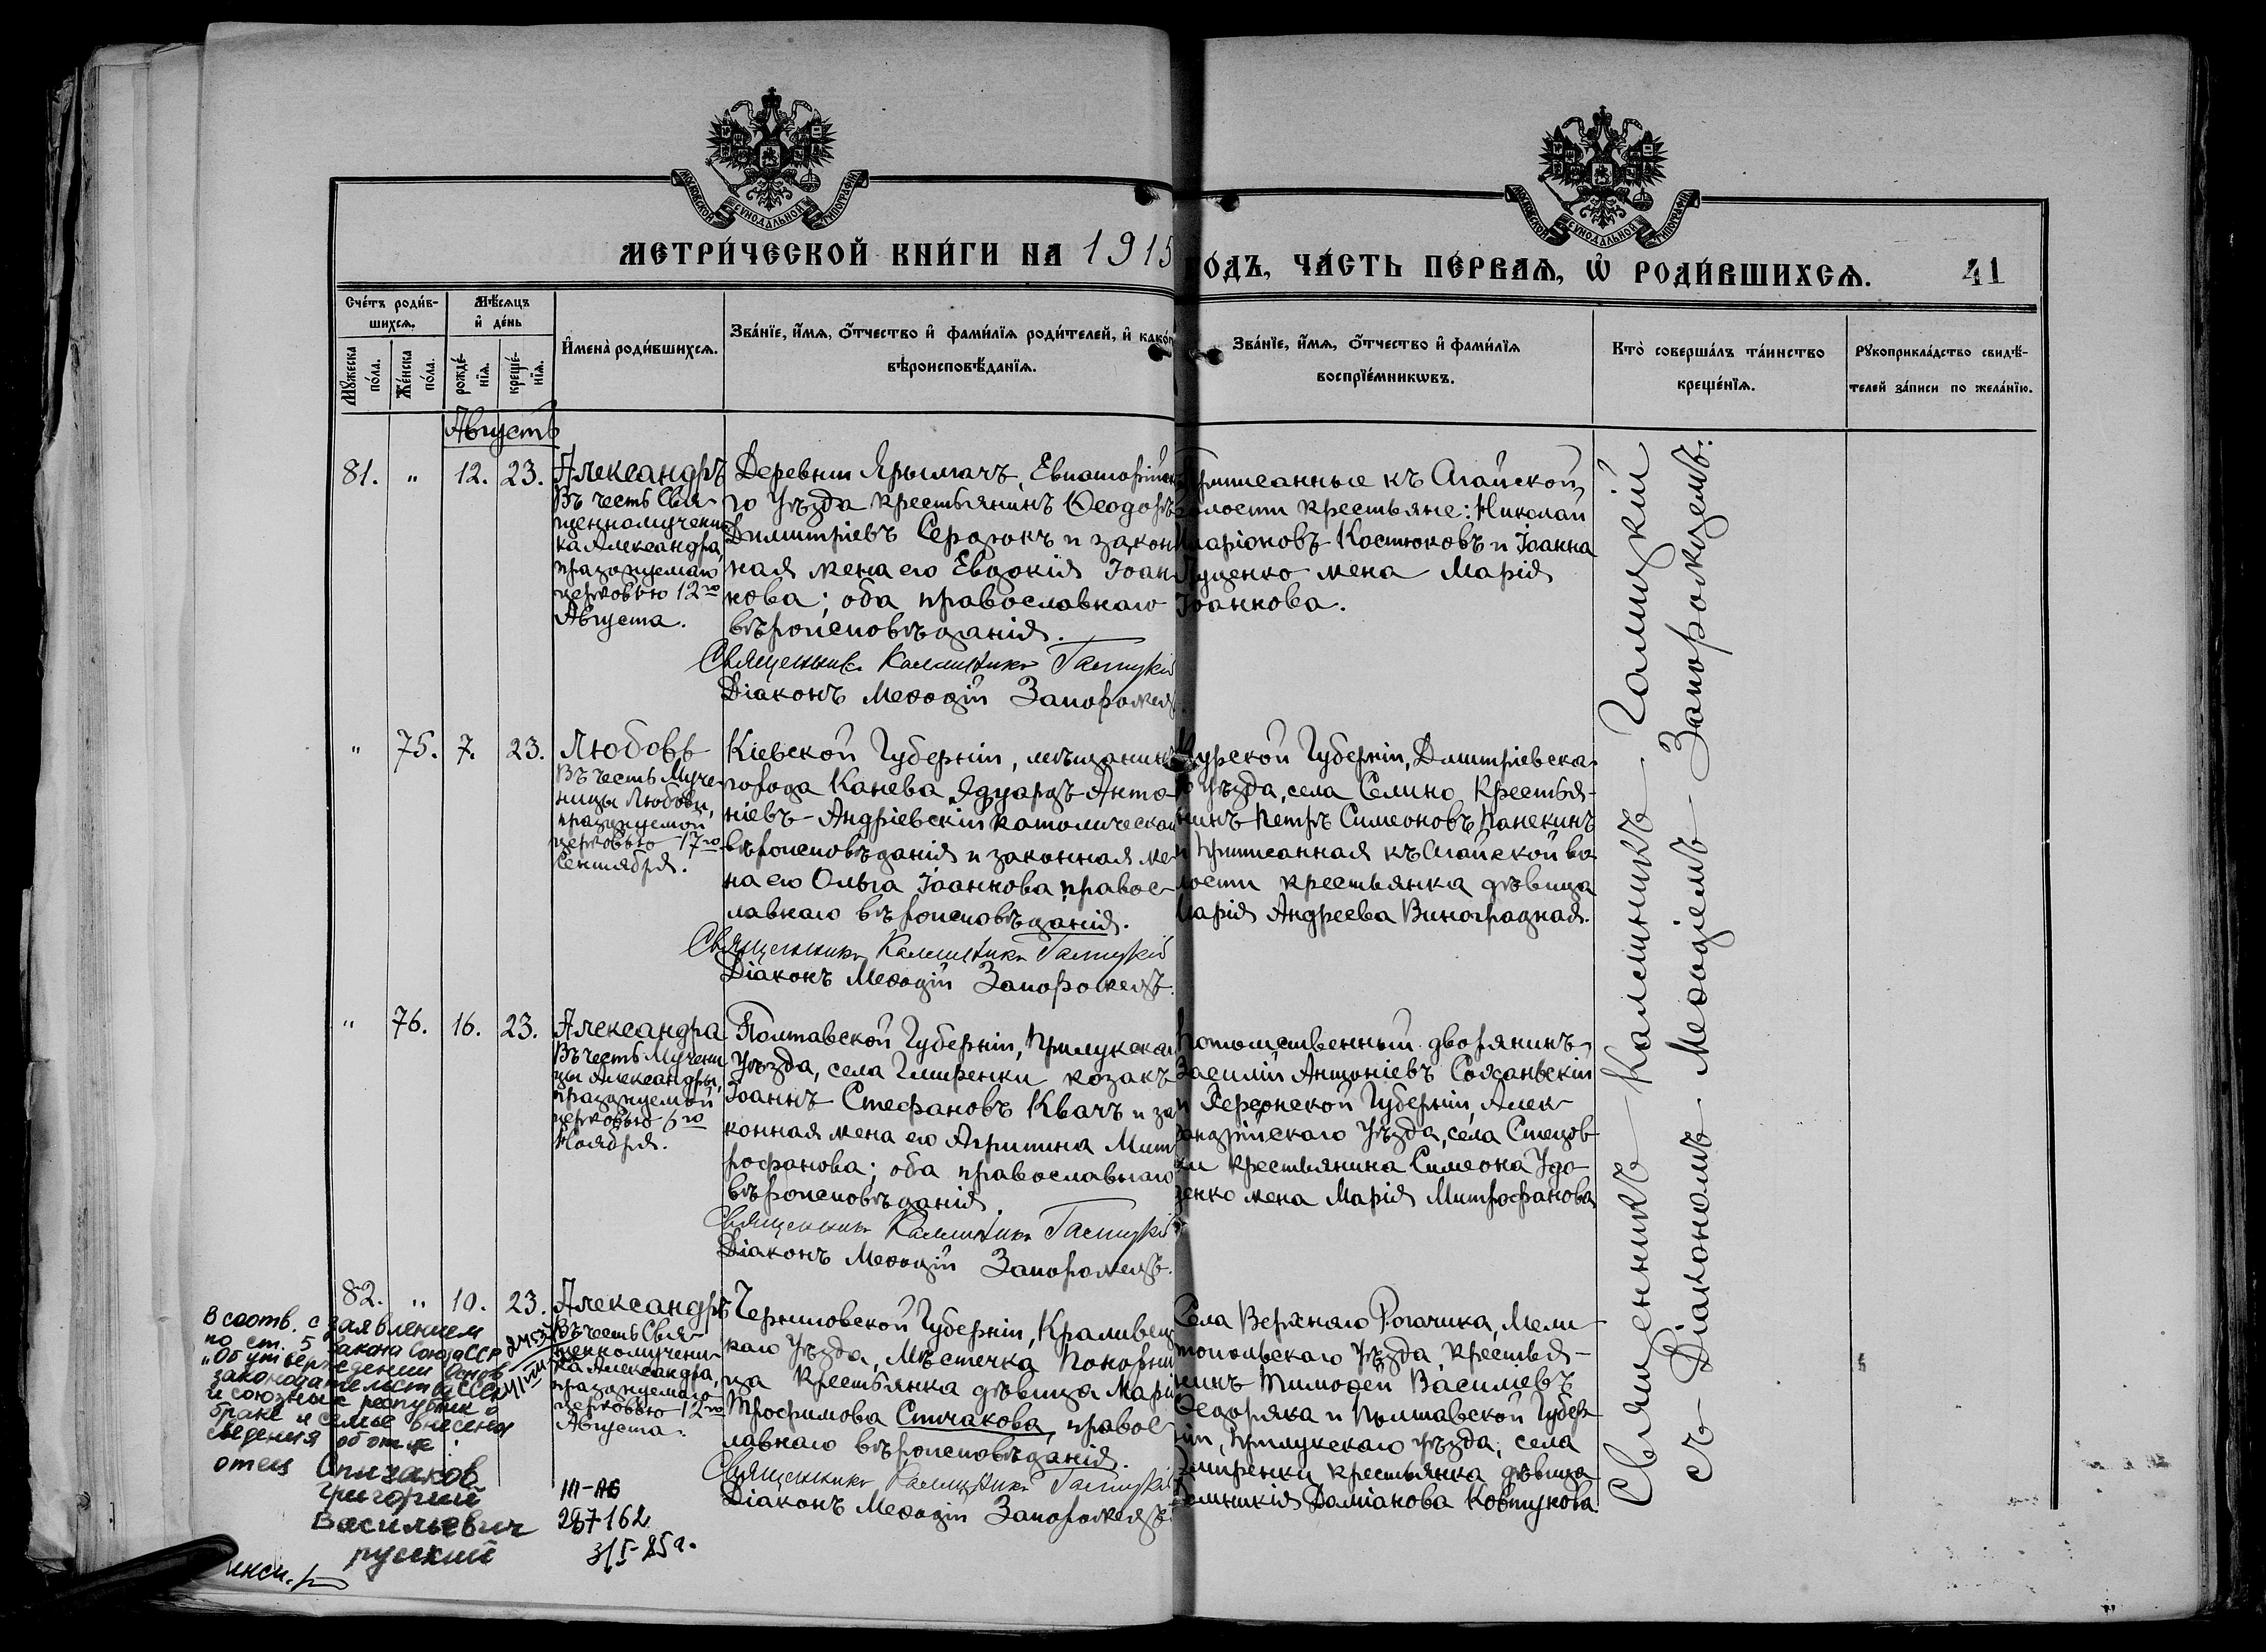 МОСКОВСКОЙ СѴНОДАЛЬНОЙ ТИПОГРАФІИ
МОСКОВСКОЙ СѴНОДАЛЬНОЙ ТИПОГРАФІИ
МЕТРИ́ЧЕСКОЙ КНИ́ГИ НА 1915
ОДЪ, ЧА́СТЬ ПЕ́РВАѦ, Ѡ҆ РОДИ́ВШИХСѦ. 41
Сче́тъ роди́в-
шихсѧ.
Мꙋ́жеска по́ла.
Же́нска по́ла.
Мѣ́сѧцъ
и҆ де́нь
рожде́-
нїѧ.
креще́-
нїѧ.
И҆мена̀ роди́вшихсѧ.
Зва́нїе, и҆́мѧ, ѻ҆́тчество и҆ фами́лїѧ роди́телей, и҆ како́г
вѣроисповѣ́данїѧ.
Зва́нїе, и҆́мѧ, ѻ҆́тчество и҆ фами́лїѧ
воспрїе́мникѡвъ.
Кто̀ соверша́лъ та́инство
креще́нїѧ.
Рꙋкоприкла́дство свидѣ́-
телей за́писи по жела́нїю.
Августъ
81. " 12. 23.
Александръ
Въ честь Свя-
щенномучени
ка Александра,
празднуемаго
церковью 12го
Августа.
Деревни Ярылгачъ, Евпаторійска
го Уѣзда крестьянинъ Ѳеодоръ
Димитріевъ Сердюкъ и закон
ная жена его Евдокія Іоан
нова; оба православнаго
вѣроисповѣданія.
Священникъ Каллиникъ Галицкій
Діаконъ Меѳодій Запорожецъ
Приписанные къ Агайской
волости крестьяне: Николай
Иларіоновъ Костюковъ и Іоанна
Луценко жена Марія
Іоаннова.
" 75. 7. 23.
Любовь
Въ честь Муче-
ницы Любови,
празднуемой
церковью 17го
Сентября.
Кіевской Губерніи, мѣщанинъ
города Канева Эдуардъ Анто-
ніевъ Андріевскій католическаго
вѣроисповѣданія и законная же
на его Ольга Іоаннова, правос-
лавнаго вѣроисповѣданія.
Священникъ Каллиникъ Галицкій
Діаконъ Меѳодій Запорожецъ.
Курской Губерніи, Дмитріевска-
го Уѣзда, села Селино крестья-
нинъ Петръ Симеоновъ Панекинъ
и приписанная къ Агайской во-
лости крестьянка дѣвица
Марія Андреева Виноградная.
" 76. 16. 23.
Александра
Въ честь Мучени
цы Александры,
празднуемой
церковью 6го
Ноября.
Полтавской Губерніи, Прилукскаго
Уѣзда, села Гмиренки козакъ
Іоаннъ Стефановъ Квачъ и за
конная жена его Агрипина Мит
рофанова; оба православнаго
вѣроисповѣданія.
Священникъ Каллиникъ Галицкій
Діаконъ Меѳодій Запорожецъ.
Потомственный дворянинъ
Василій Антоніевъ
и Херсонской Губерніи, Алек-
сандрійскаго Уѣзда, села Стецов-
ки крестьянина Симеона
жена Марія Митрофанова
82. " 10. 23.
Александръ
Въ честь Свя-
щенномучени-
ка Александра,
празднуемаго
церковью 12го
Августа.
Черниговской Губерніи, Кралевец
каго Уѣзда, Мѣстечка Понорни
ца крестьянка дѣвица Марія
Трофимова Спичакова, правос-
лавнаго вѣроисповѣданія.
Священникъ Каллиникъ Галицкій
Діаконъ Меѳодій Запорожецъ
Села Верхняго Рогачика, Мели
топольскаго Уѣзда, крестья-
нинъ Тимоѳей Василіевъ
Ѳедоряка и Полтавской Губер-
ніи, Прилукскаго Уѣзда, села
Гмиренки крестьянка дѣвица
Даміанова Ковтунова.
Священникъ Каллиникъ Галицкій
съ Діакономъ Меѳодіемъ Запорожцемъ.
В соотв. с заявлением
по ст. 5 Закона Союза ССР
„Об утверждении Основ
законодательства СССР
и союзных республик о
браке и семье внесены
сведения об отце:
отец Спичаков
Григорий
Васильевич
русский
инсп.
III-АБ
287162
31/I-85г.